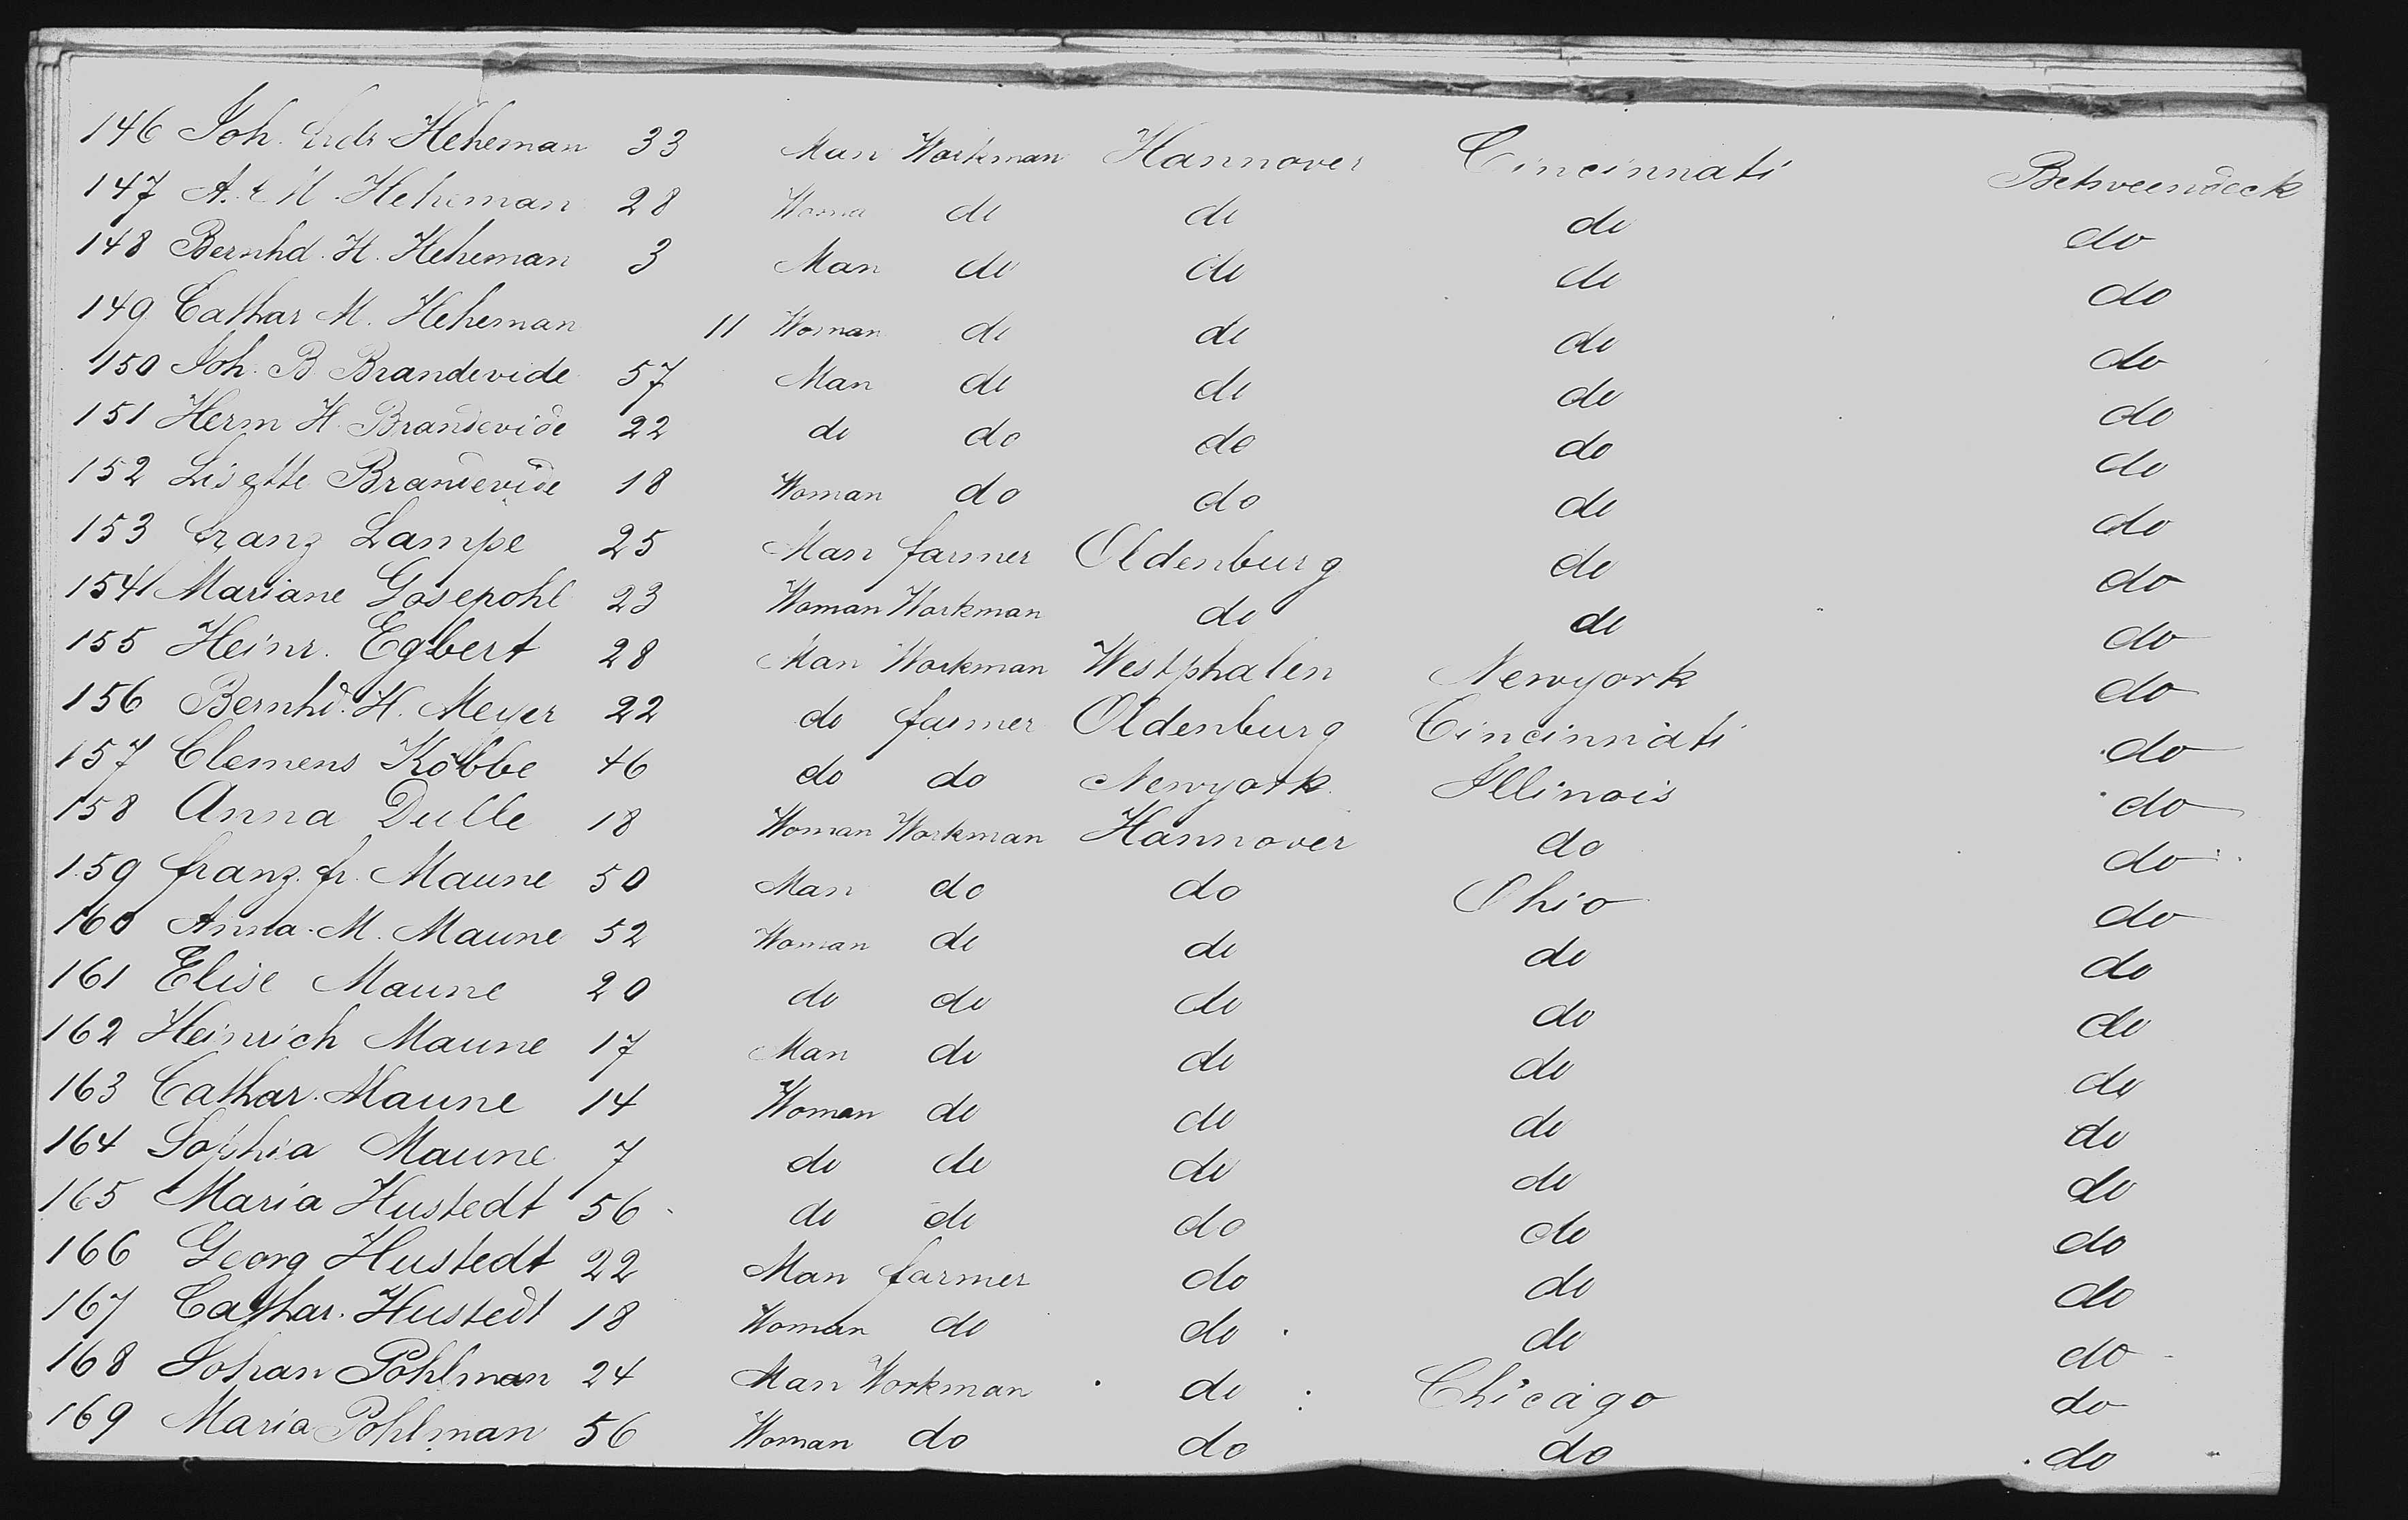 146 Joh. Heheman 33 Man Workman Hannover Cincinnati Betweendeck
147 A. M. Heheman 28 Woma do do do do
148 Bernhd. H. Heheman 3 Man do do do do
149 Cathar M. Heheman 11 Woman do do do do
150 Joh. B Brandevide 57 Man do do do do
151 Herm H. Brandevide 22 do do do do do
152 Lisette Brandevide 18 Woman do do do do
153 Franz Lampe 25 Man farmer Oldenburg do do
154 Mariane Gosepohl 23 Woman Workman do do do
155 Heinr. Egbert 28 Man Workman Westphalen Newyork do
156 Bernhd. H. Meyer 22 do farmer Oldenburg Cincinnati do
157 Clemens Kobbe 46 do do Newyork Illinois do
158 Anna Dulle 18 Woman Workman Hannover do do
159 franz. fr. Maune 50 Man do do Ohio do
160 Anna. M. Maune 52 Woman do do do do
161 Elise Maune 20 do do do do do
162 Heinrich Maune 17 Man do do do do
163 Cathar. Maune 14 Woman do do do do
164 Sophia Maune 7 do do do do do
165 Maria Hustedt 56 do do do do do
166 Georg Hustedt 22 Man farmer do do do
167 Cathar. Hustedt 18 Woman do do do do
168 Johan Pohlman 24 Man Workman do Chicago do
169 Maria Pohlman 56 Woman do do do do